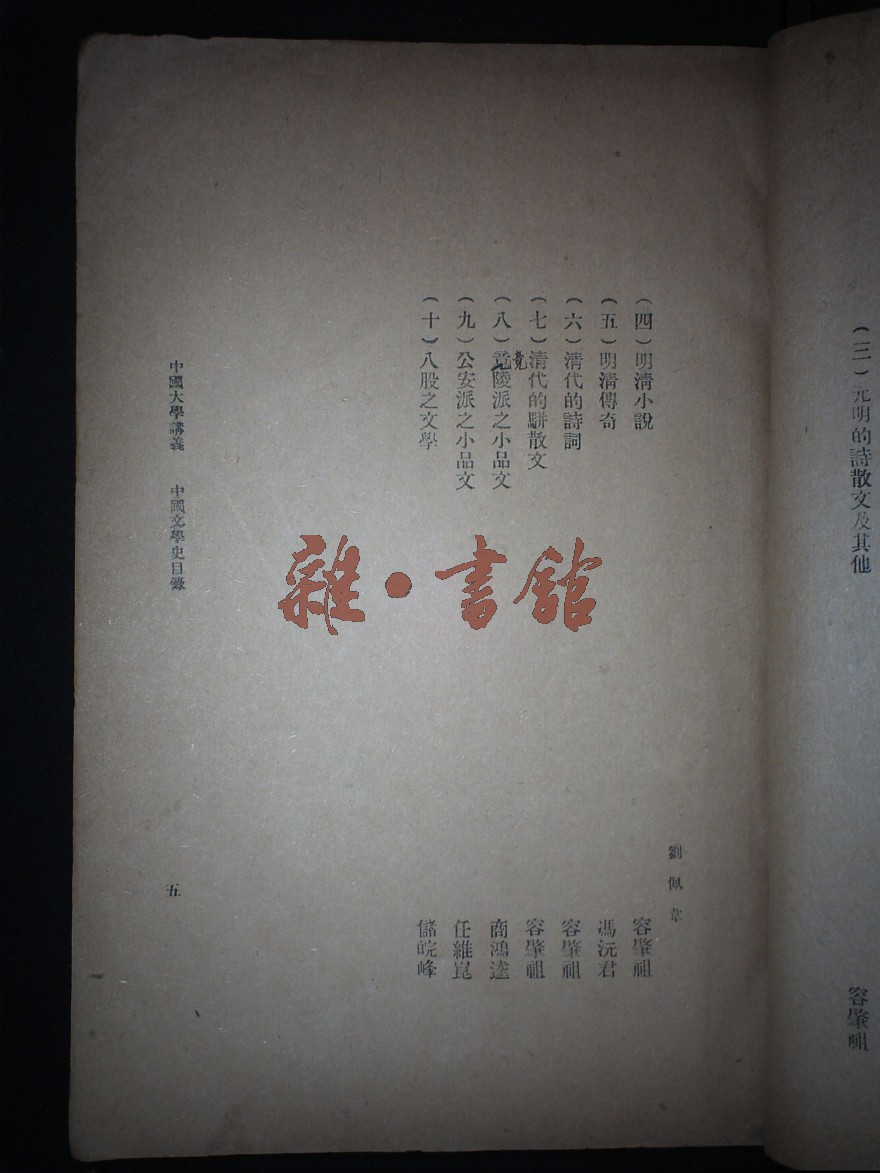 (三)元明的詩散文及其他
容肇祖
劉佩韋
(四)明清小說
容肇祖
(五)明清傳奇
馮沅君
(六)清代的詩詞
容肇祖
(七)清代的駢散文
容肇祖
竟
(八)竟陵派之小品文
商鴻逵
(九)公安派之小品文
任維焜
(十)八股之文學
儲皖峰
中國大學講義 中國文學史目錄
五
雜·書館